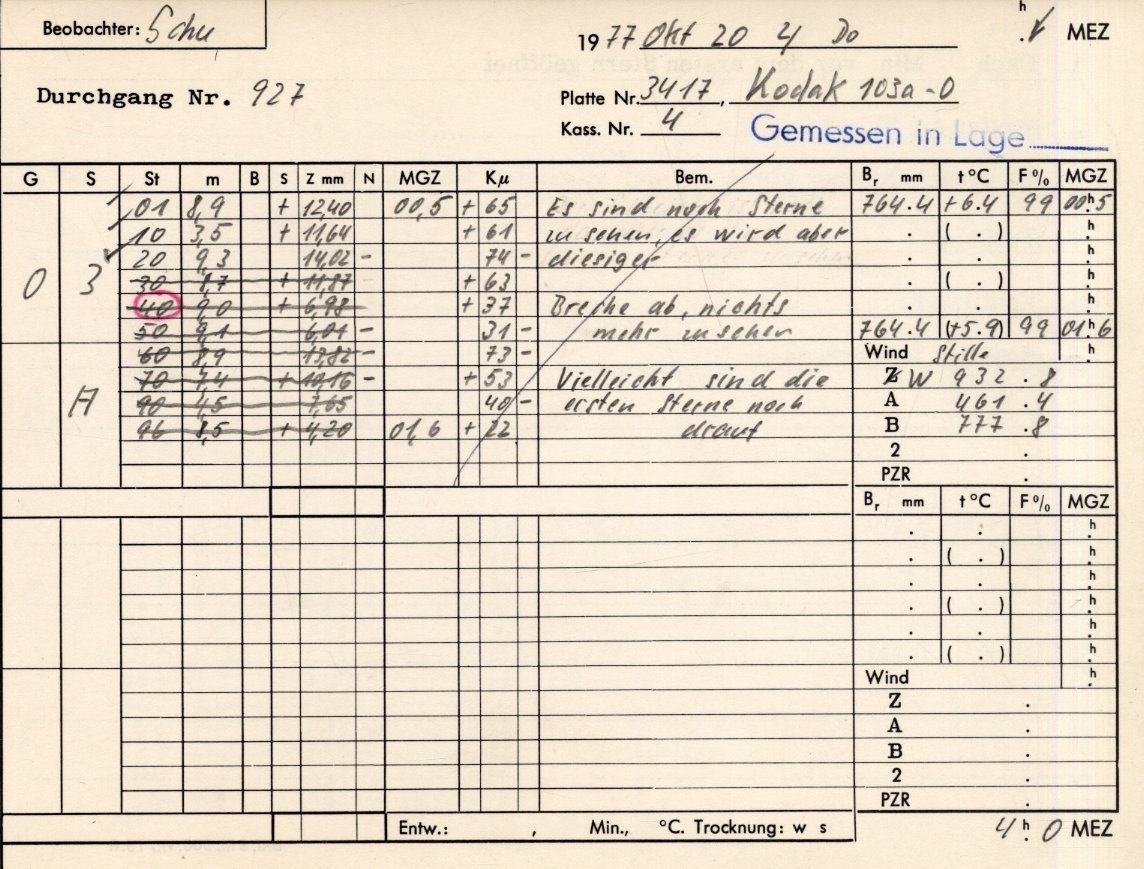 Beobachter: Schu
1977 Okt 20 4 Do h . MEZ
Durchgang Nr. 927
Platte Nr. 3417, Kodak 103a-O
Kass. Nr. 4
Gemessen in Lage
G S St m B S Z mm N MGZ Kμ Bem. Br mm t °C F % MGZ
01 8,9 + 12,40 00,5 + 65 Es sind noch Sterne 764.4 +6.4 99 00h5
10 3,5 + 11,64 + 61 zu sehen, es wird aber . ( . ) h
20 9,3 14,02 - 74 - diesiger . . h
O 3 30 8,7 + 11,87 + 63 . ( . ) h
40 9,0 + 6,98 + 37 Breche ab, nichts . . h
50 9,1 6,01 - 31 - mehr zu sehen 764.4 (+5.9) 99 01h6
60 8,9 13,82 - 73 - Wind Stille h
70 7,4 + 10,16 - + 53 Vielleicht sind die Z W 932.8
A 90 4,5 7,65 40 - ersten Sterne noch A 461.4
96 8,5 + 4,20 01,6 + 22 drauf B 777.8
2 .
PZR .
Br mm t °C F % MGZ
. . h
. ( . ) h
. . h
. ( . ) h
. . h
. ( . )
Wind h
Z .
A .
B .
2 .
PZR .
Entw.: , Min., °C. Trocknung: w s
4h.0 MEZ